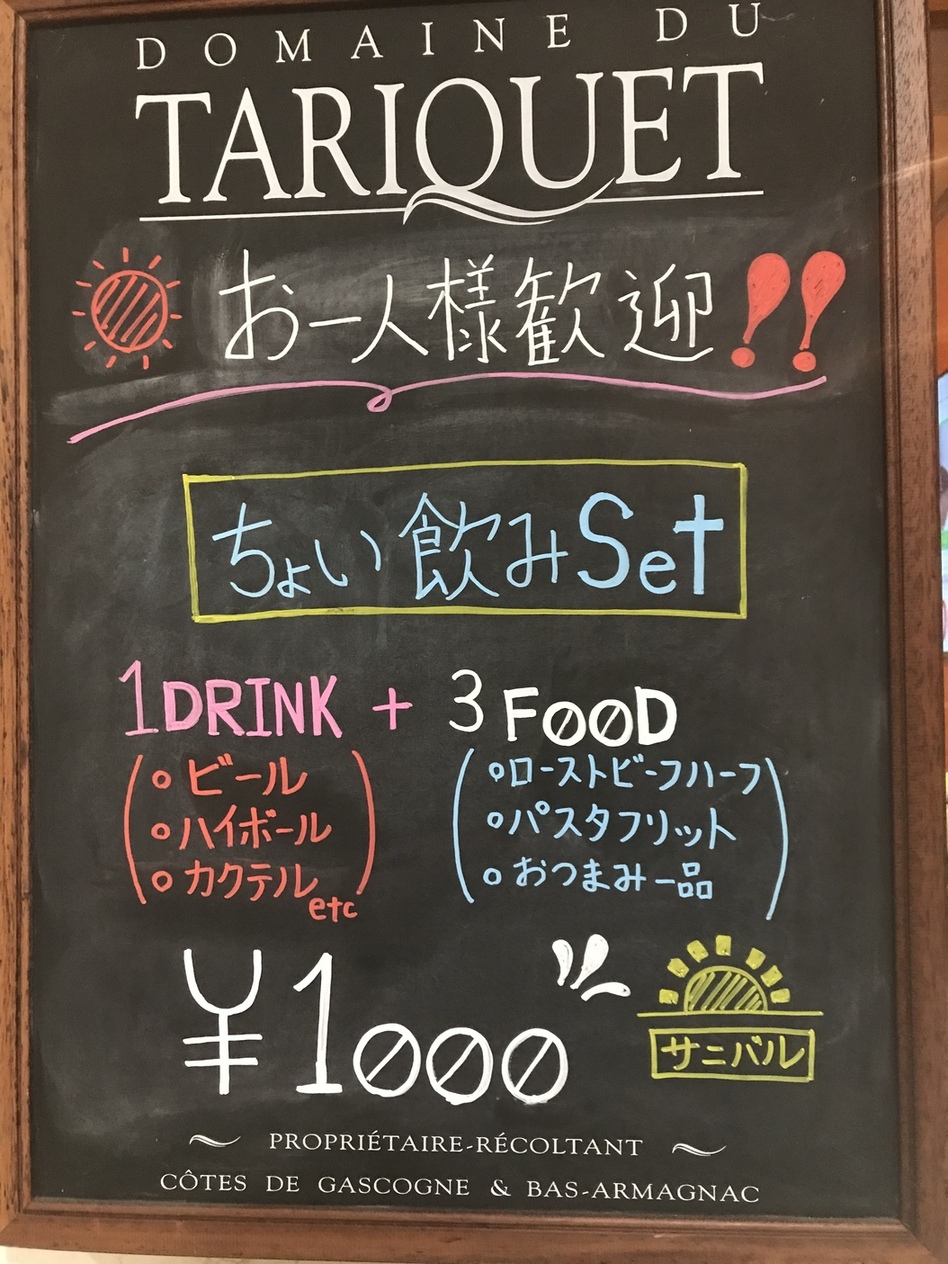 DOMAINE DU
TARIQUET
お一人様歓迎!!
ちょい飲みSet
1DRINK + 3 FOOD
(◦ビール
◦ハイボール
◦カクテル etc)
(◦ローストビーフハーフ
◦パスタフリット
◦おつまみ一品)
¥1000
サニバル
PROPRIÉTAIRE-RÉCOLTANT
CÔTES DE GASCOGNE & BAS-ARMAGNAC